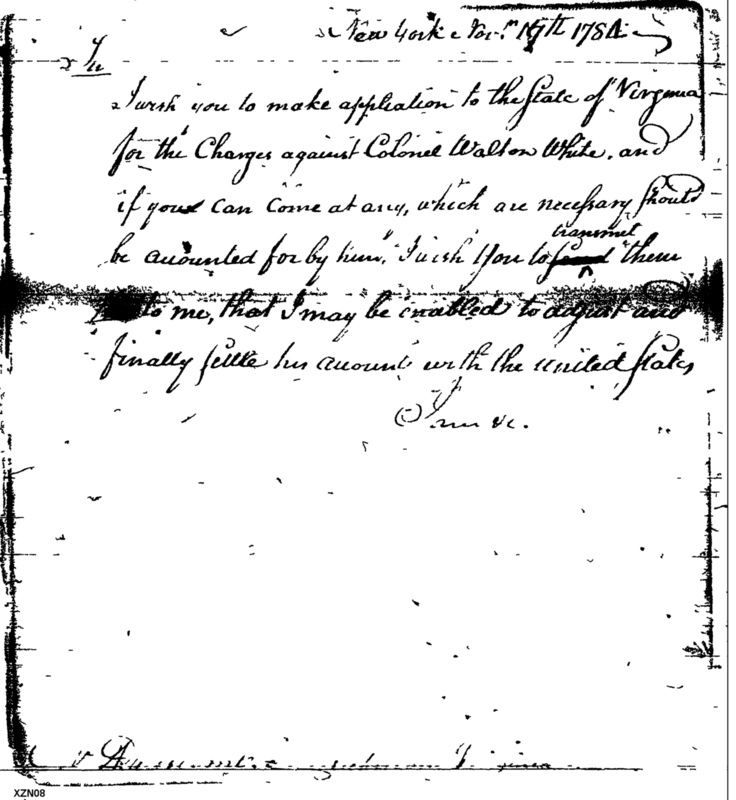 New York Nov.r 17th 1784
Sir
I wish you to make application to the State of Virginia
for the Charges against Colonel Walton White, and
if you can come at any, which are necessary should
be accounted for by him, I wish You to transmit them
to me, that I may be enabled to adjust and
finally settle his accounts with the United States
I am &c.
XZN08